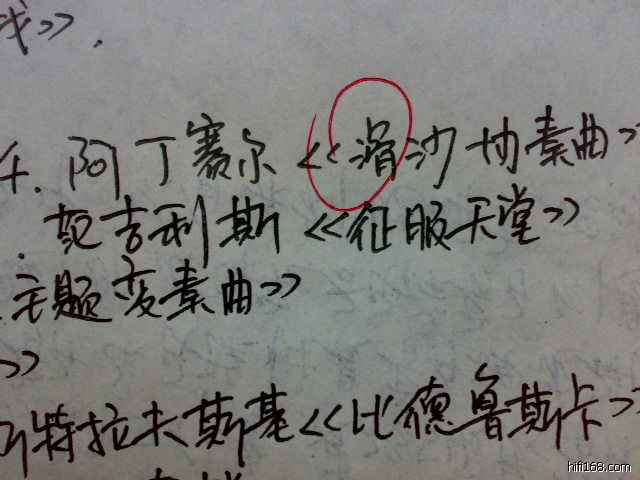 》.
4. 阿丁赛尔《滑沙协奏曲》
. 范吉利斯《征服天堂》
. 主题变奏曲》
》
斯特拉夫斯基《比德鲁斯卡》
hifi168.com